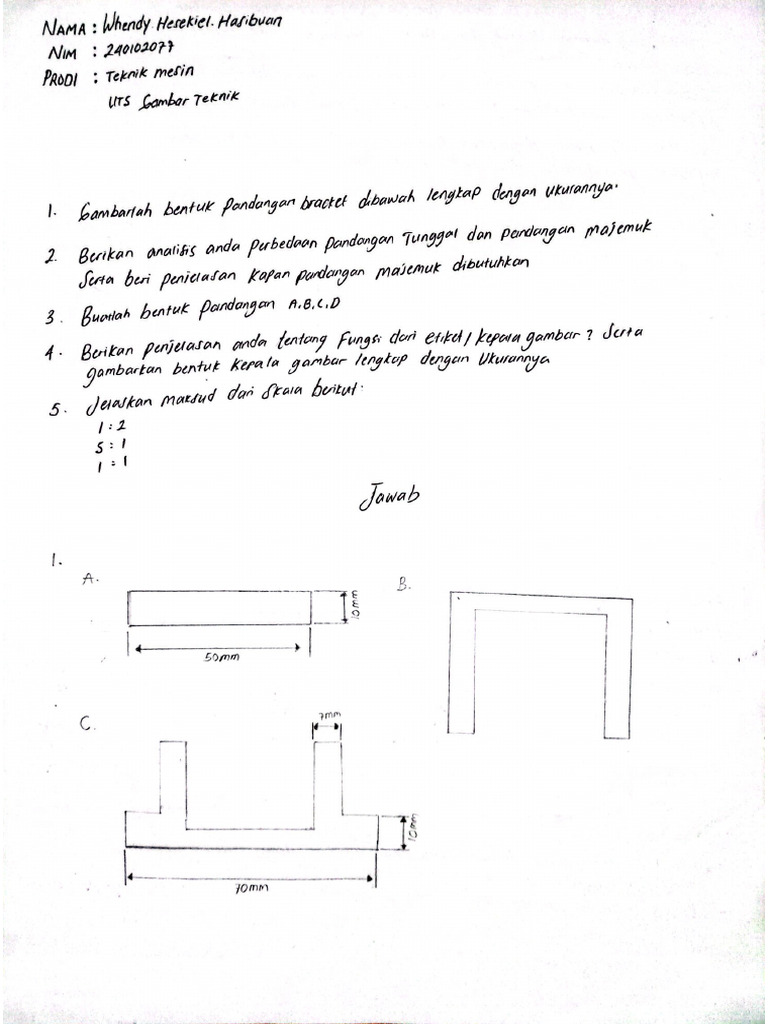 NAMA : Whendy Hesekiel. Hasibuan
NIM : 240102077
PRODI : Teknik mesin
UTS Gambar Teknik
1. Gambarlah bentuk Pandangan bracket dibawah lengkap dengan Ukurannya.
2. Berikan analisis anda perbedaan pandangan Tunggal dan pandangan majemuk
Serta beri penjelasan Kapan pandangan majemuk dibutuhkan
3. Buatlah bentuk Pandangan A.B.C.D
4. Berikan Penjelasan anda tentang Fungsi dari etiket/kepala gambar? Serta
gambarkan bentuk Kepala gambar lengkap dengan Ukurannya
5. Jelaskan maksud dari Skala berikut:
1 : 2
5 : 1
1 : 1
Jawab
1.
A.
10mm
50mm
B.
C.
7mm
10mm
70mm